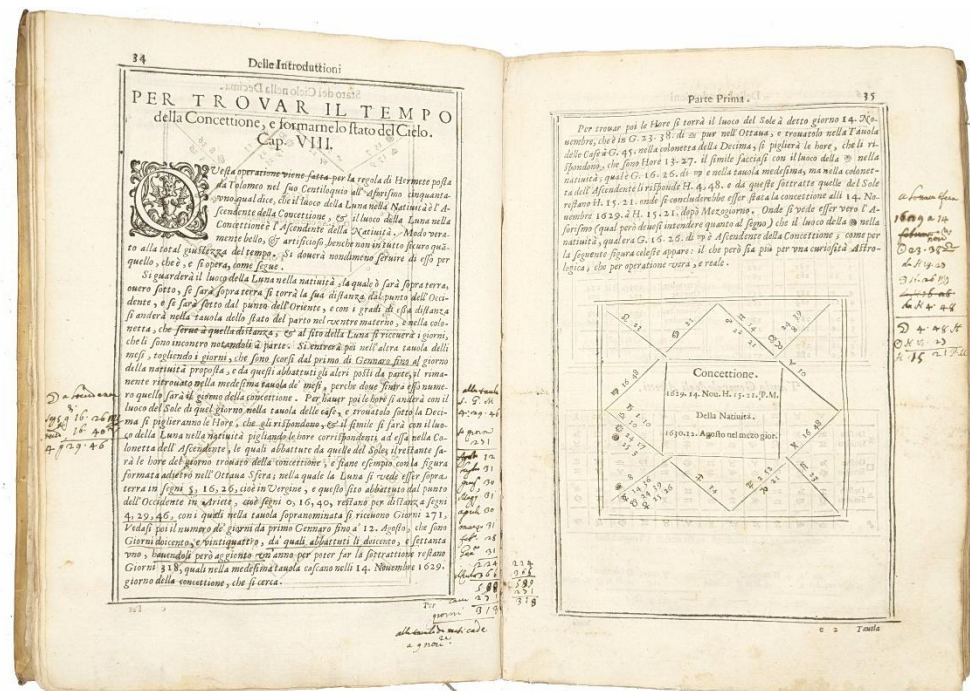 34
Delle Introduttioni
PER TROVAR IL TEMPO
della Concettione, e formarne lo stato del Cielo.
Cap. VIII.
QVesta operatione viene fatta per la regola di Hermete posta
da Tolomeo nel suo Centiloquio all'Aforismo cinquanta-
vno, qual dice, che il luoco della Luna nella Natività è l'A-
scendente della Concettione, & il luoco della Luna nella
Concettione è l'Ascendente della Natività. Modo vera-
mente bello, & artificioso, benche non in tutto sicuro quã-
to alla total giustezza del tempo. Si douerà nondimeno seruire di esso per
quello, che è, e si opera, come segue.
Si guarderà il luoco della Luna nella natiuità, la quale ò sarà sopra terra,
ouero sotto, se sarà sopra terra si torrà la sua distanza dal punto dell'Occi-
dente, e se sarà sotto dal punto dell'Oriente, e con i gradi di essa distanza
si anderà nella tauola dello stato del parto nel ventre materno, e nella colo-
netta, che serue à quella distanza, & al sito della Luna si riceuerà i giorni,
che li sono incontro notandoli à parte. Si entrerà poi nell'altra tauola delli
mesi, togliendo i giorni, che sono scorsi dal primo di Gennaro fino al giorno
della natiuità proposta, e da questi abbattuti gli altri posti da parte, il rima-
nente ritrouato nella medesima tauola de' mesi, perche doue finirà esso nume-
ro quello sarà il giorno della concettione. Per hauer poi le hore si anderà con il
luoco del Sole di quel giorno nella tauola delle case, e trouatolo sotto la Deci-
ma si piglieranno le Hore, che gli rispondono, & il simile si farà con il luo-
co della Luna nella natiuità pigliando le hore corrispondenti ad essa nella Co-
lonetta dell'Ascendente, le quali abbattute da quelle del Sole, il restante sa-
rà le hore del giorno trouato della concettione, e siane esempio con la figura
formata adietro nell'Ottaua Sfera; nella quale la Luna si vede esser sopra
terra in segni 5, 16, 26, cioè in Vergine, e questo sito abbattuto dal punto
dell'Occidente in Ariete, cioè segni 0, 16, 40, restano per distanza segni
4, 29, 46, con i quali nella tauola sopranominata si riceuono Giorni 271,
Vedasi poi il numero de' giorni da primo Gennaro fino a' 12. Agosto, che sono
Giorni doicento, e vintiquattro, da' quali abbattuti li doicento, e settanta
vno, hauendoli però aggionto vn'anno per poter far la sottrattione restano
Giorni 318, quali nella medesima tauola cascano nelli 14. Nouembre 1629.
giorno della concettione, che si cerca.
4 29 46
271
12
31
30
31
30
31
28
31
224
365
589
271
318
Parte Prima.
35
Per trouar poi le Hore si torrà il luoco del Sole à detto giorno 14. No-
uembre, che è in G. 23. 38. di ♏ pur nell'Ottaua, e trouatolo nella Tauola
delle Case à G. 45. nella colonetta della Decima, si piglierà le hore, che li ri-
spondono, che sono Hore 13. 27. il simile facciasi con il luoco della ☽ nella
natiuità; qual è G. 16. 26. di ♍ e nella tauola medesima, ma nella colonet-
ta dell'Ascendente li risponde H. 4. 48. e da queste sottratte quelle del Sole
restano H. 15. 21. onde si concluderebbe esser stata la concettione alli 14. No-
uembre 1629. à H. 15. 21. dopò Mezogiorno. Onde si vede esser vero l'A-
forismo (qual però deuesi intendere quanto al segno) che il luoco della ☽ nella
natiuità, qual era G. 16. 26. di ♍ è Ascendente della Concettione; come per
la seguente figura celeste appare: il che però sia più per vna curiosità Astro-
logica, che per operatione vera, e reale.
Concettione.
1629. 14. Nou. H. 15. 21. P. M.
Della Natiuità.
1630. 12. Agosto nel mezo gior.
c 2
Tauola